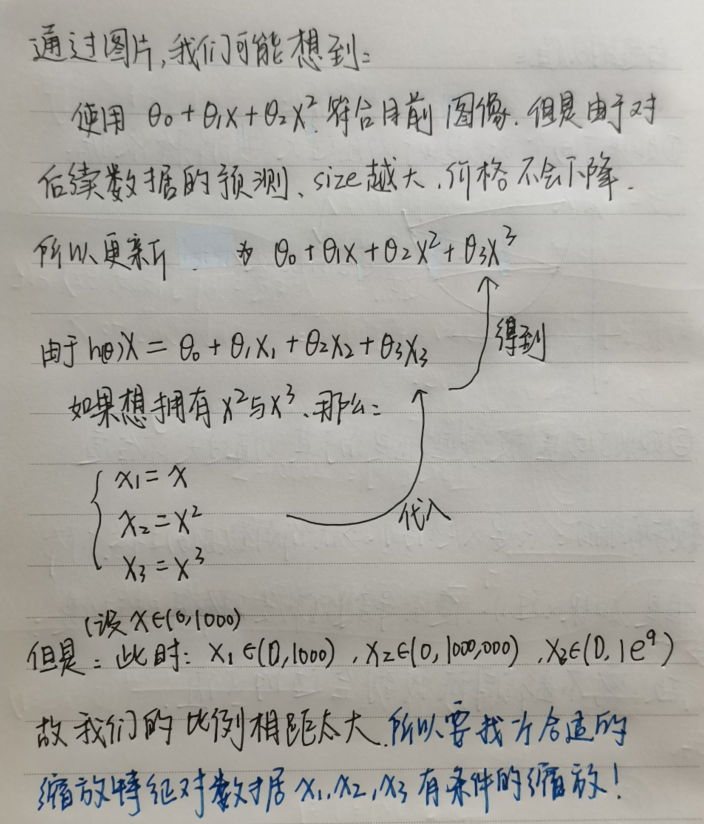 通过图片,我们可能想到:
使用 θ₀+θ₁x+θ₂x² 符合目前图像. 但是由于对
后续数据的预测、size越大,价格不会下降.
所以更新 为 θ₀+θ₁x+θ₂x²+θ₃x³
得到
由于 h(θ)x = θ₀+θ₁x₁+θ₂x₂+θ₃x₃
如果想拥有 x²与x³、那么:
x₁=x
x₂=x²
x₃=x³
代入
(设x∈(0,1000)
但是: 此时: x₁∈(0,1000) , x₂∈(0,1000,000) , x₃∈(0,1e⁹)
故我们的比例相距太大.所以要找个合适的
缩放特征对数据x₁,x₂,x₃有条件的缩放!